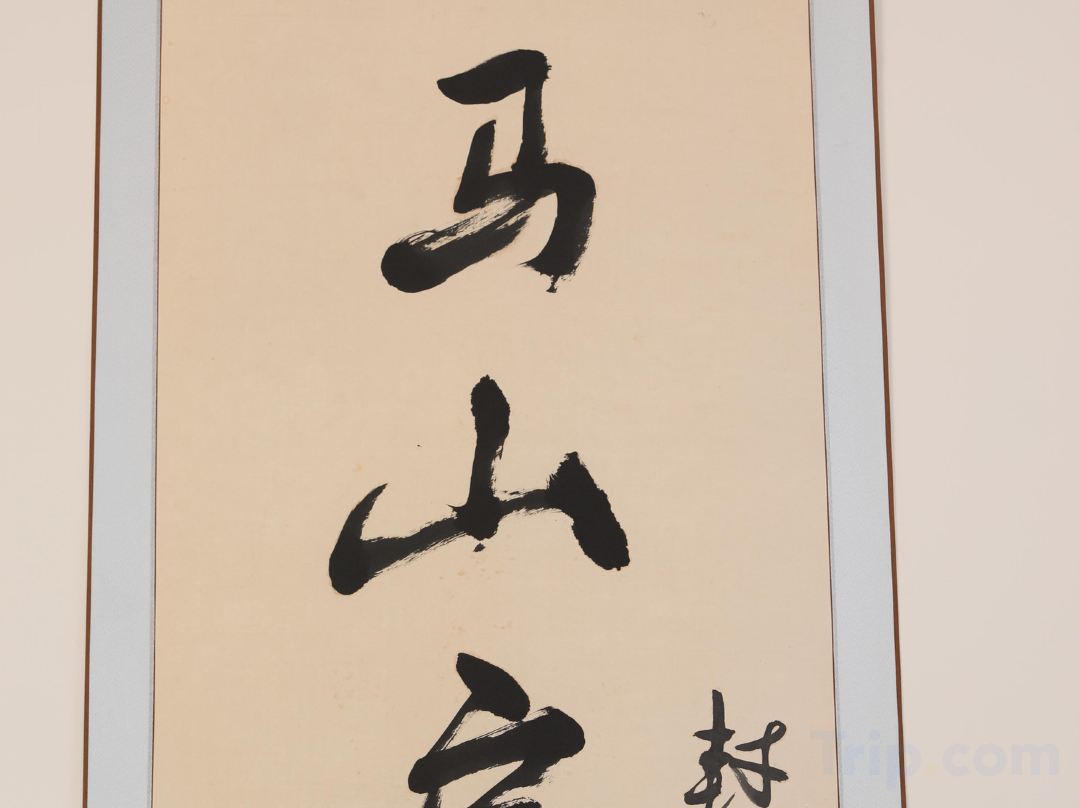 马山
封
Trip.com